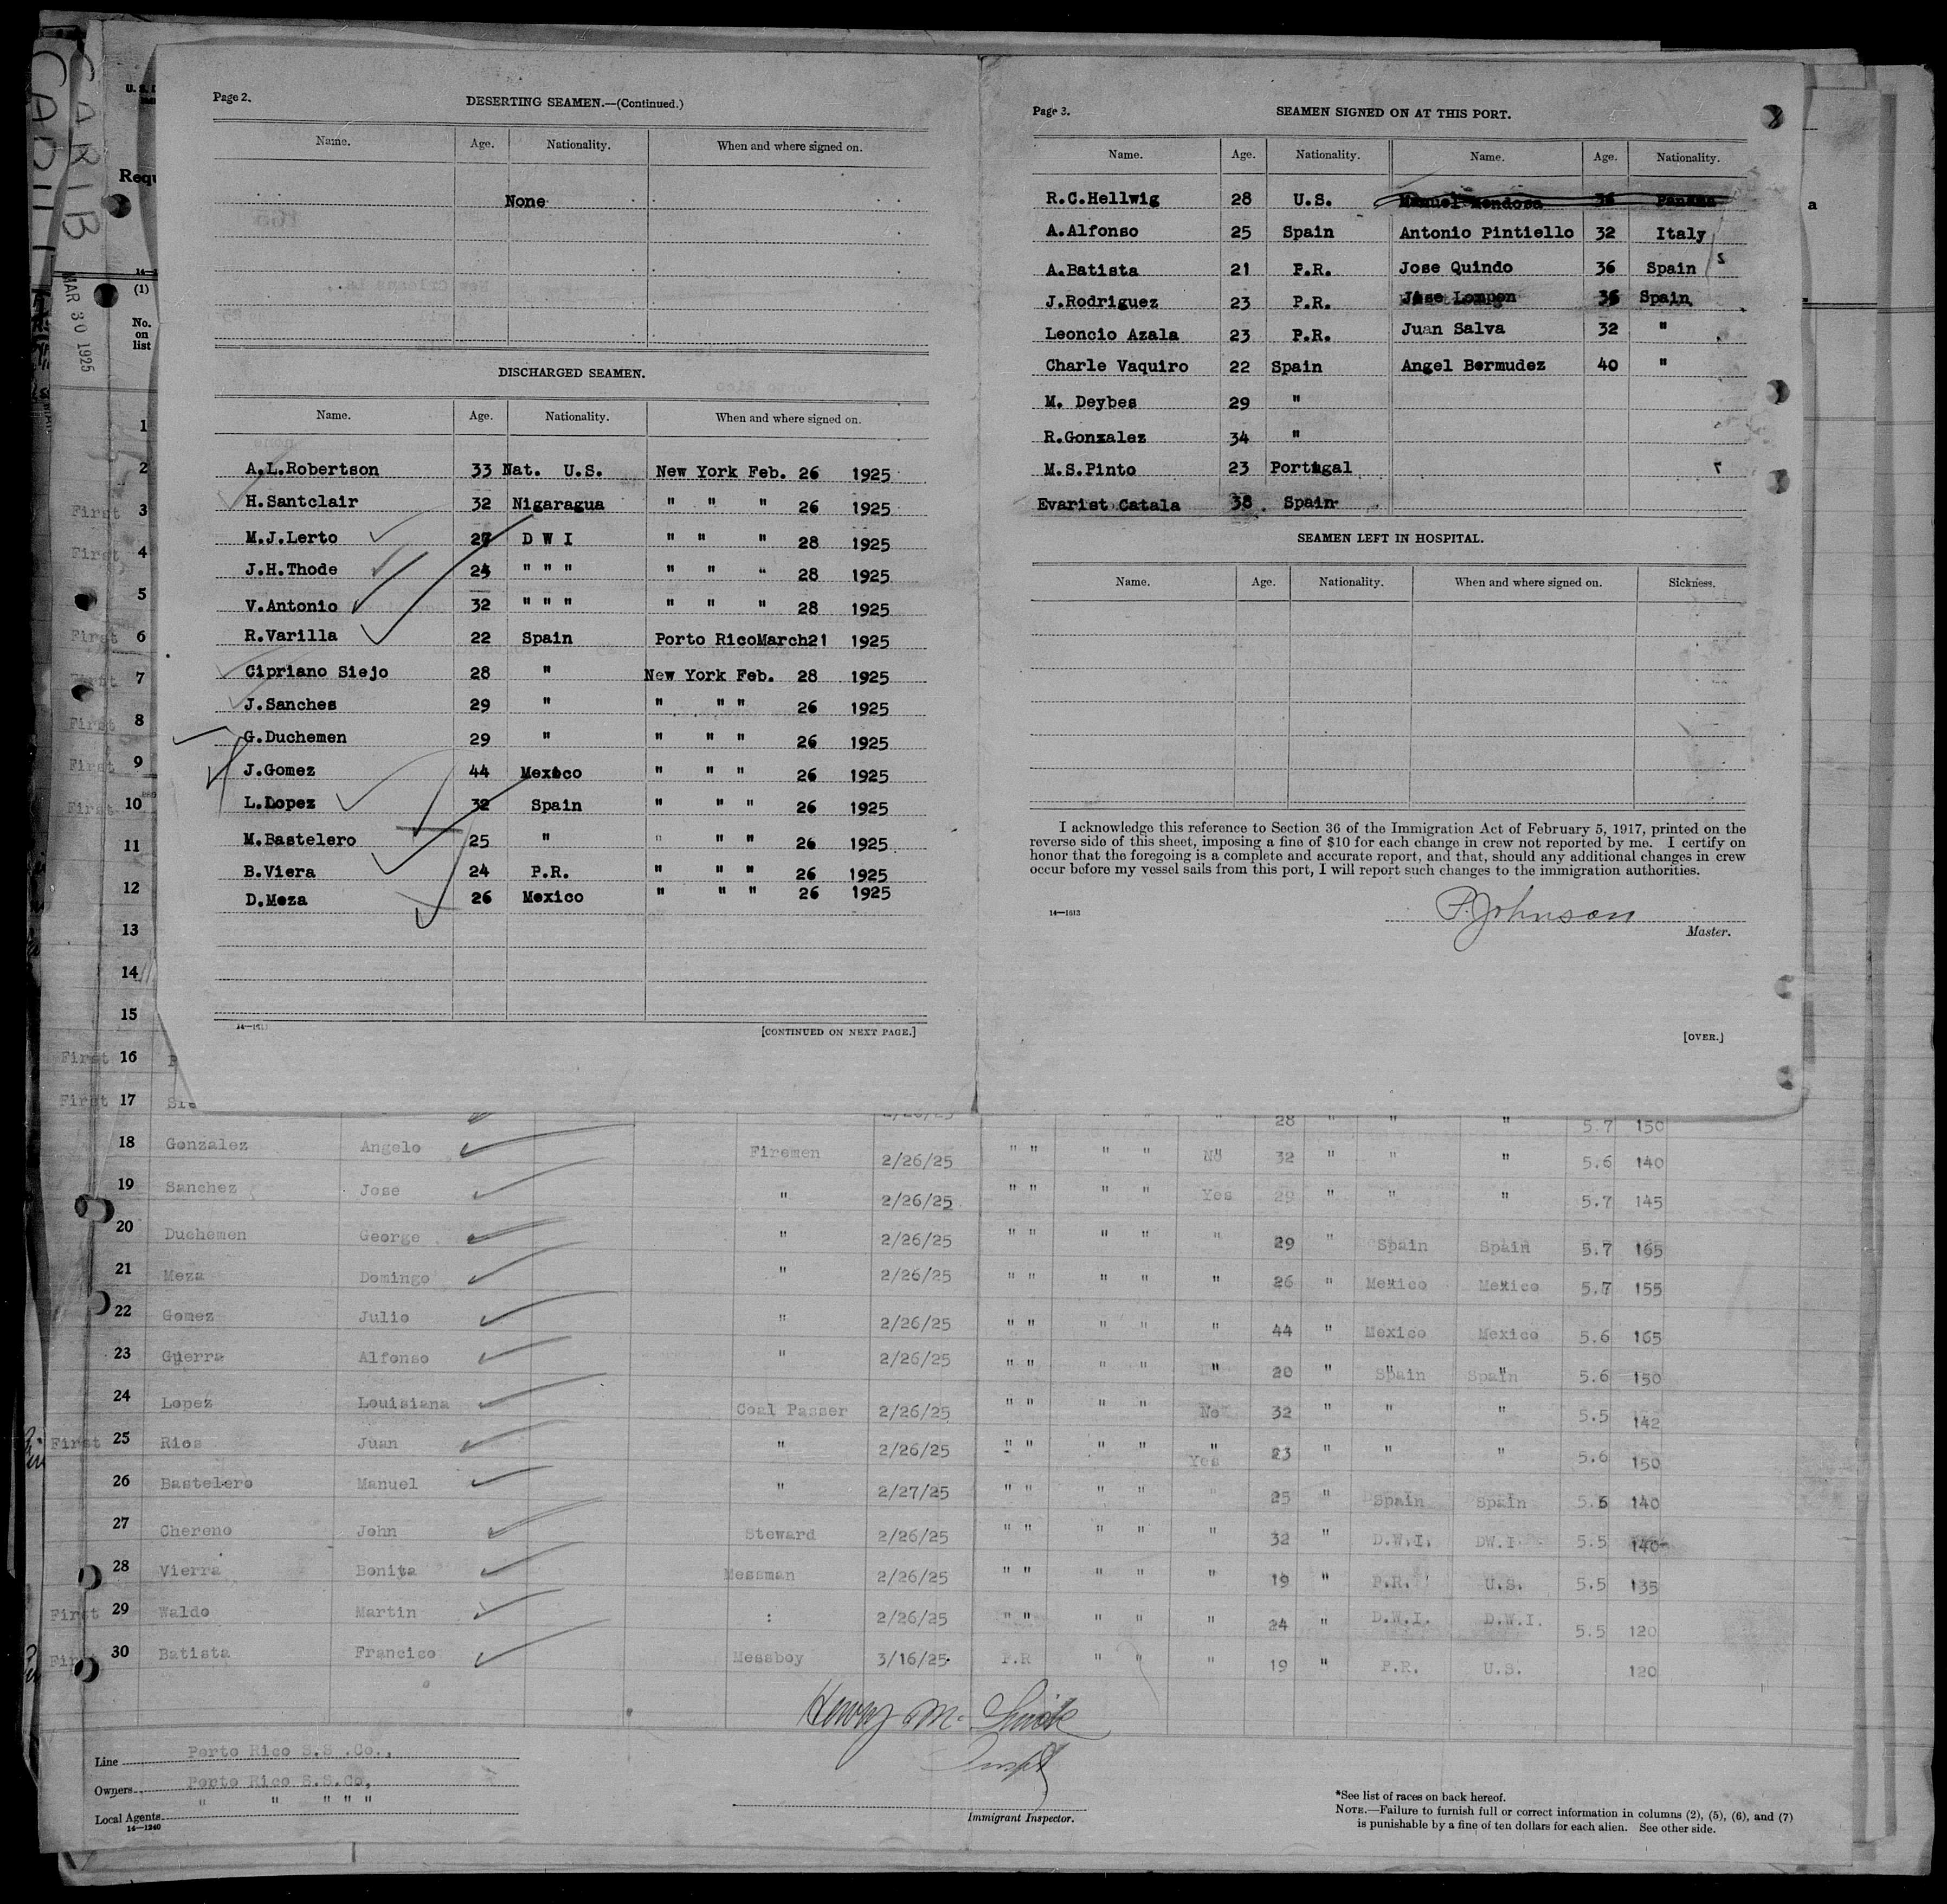 CARIB
MAR 30 1925
Requ
(1)
No.
on
list
Page 2.
DESERTING SEAMEN.—(Continued.)
Name. Age. Nationality. When and where signed on.
None
DISCHARGED SEAMEN.
Name. Age. Nationality. When and where signed on.
A.L.Robertson 33 Nat. U.S. New York Feb. 26 1925
H.Santclair 32 Nigaragua " " " 26 1925
M.J.Lerto 27 D W I " " " 28 1925
J.H.Thode 24 " " " " " " 28 1925
V.Antonio 32 " " " " " " 28 1925
R.Varilla 22 Spain Porto RicoMarch21 1925
Cipriano Siejo 28 " New York Feb. 28 1925
J.Sanches 29 " " " " 26 1925
G.Duchemen 29 " " " " 26 1925
J.Gomez 44 Mexico " " " 26 1925
L.Lopez 32 Spain " " " 26 1925
M.Bastelero 25 " " " " 26 1925
B.Viera 24 P.R. " " " 26 1925
D.Meza 26 Mexico " " " 26 1925
[CONTINUED ON NEXT PAGE.]
Page 3.
SEAMEN SIGNED ON AT THIS PORT.
Name. Age. Nationality. Name. Age. Nationality.
R.C.Hellwig 28 U.S. Manuel Mendosa 36 Panama
A.Alfonso 25 Spain Antonio Pintiello 32 Italy
A.Batista 21 P.R. Jose Quindo 36 Spain
J.Rodriguez 23 P.R. Jose Lompon 36 Spain
Leoncio Azala 23 P.R. Juan Salva 32 "
Charle Vaquiro 22 Spain Angel Bermudez 40 "
M. Deybes 29 "
R.Gonzalez 34 "
M.S.Pinto 23 Portugal
Evarist Catala 38 Spain
SEAMEN LEFT IN HOSPITAL.
Name. Age. Nationality. When and where signed on. Sickness.
I acknowledge this reference to Section 36 of the Immigration Act of February 5, 1917, printed on the
reverse side of this sheet, imposing a fine of $10 for each change in crew not reported by me. I certify on
honor that the foregoing is a complete and accurate report, and that, should any additional changes in crew
occur before my vessel sails from this port, I will report such changes to the immigration authorities.
14—1613
P. Johnson
Master.
[OVER.]
1
2
First 3
First 4
5
First 6
7
First 8
First 9
First 10
11
12
13
14
15
First 16
First 17 28 " " " 5.7 150
18 Gonzalez Angelo Firemen 2/26/25 " " " " No 32 " " " 5.6 140
19 Sanchez Jose " 2/26/25 " " " " Yes 29 " " " 5.7 145
20 Duchemen George " 2/26/25 " " " " " 29 " Spain Spain 5.7 165
21 Meza Domingo " 2/26/25 " " " " " 26 " Mexico Mexico 5.7 155
22 Gomez Julio " 2/26/25 " " " " " 44 " Mexico Mexico 5.6 165
23 Guerra Alfonso " 2/26/25 " " " " " 20 " Spain Spain 5.6 150
24 Lopez Louisiana Coal Passer 2/26/25 " " " " No 32 " " " 5.5 142
First 25 Rios Juan " 2/26/25 " " " " " Yes 23 " " " 5.6 150
26 Bastelero Manuel " 2/27/25 " " " " " 25 " Spain Spain 5.6 140
27 Chereno John Steward 2/26/25 " " " " " 32 " D.W.I. DW.I 5.5 140
28 Vierra Bonita Messman 2/26/25 " " " " " 19 " P.R. U.S. 5.5 135
First 29 Waldo Martin : 2/26/25 " " " " " 24 " D.W.I. D.W.I. 5.5 120
First 30 Batista Francico Messboy 3/16/25 P.R " " " 19 " P.R. U.S. 120
Line Porto Rico S.S .Co.,
Owners Porto Rico S.S.Co,
Local Agents " " " " "
14—1240
Immigrant Inspector.
*See list of races on back hereof.
NOTE.—Failure to furnish full or correct information in columns (2), (5), (6), and (7)
is punishable by a fine of ten dollars for each alien. See other side.